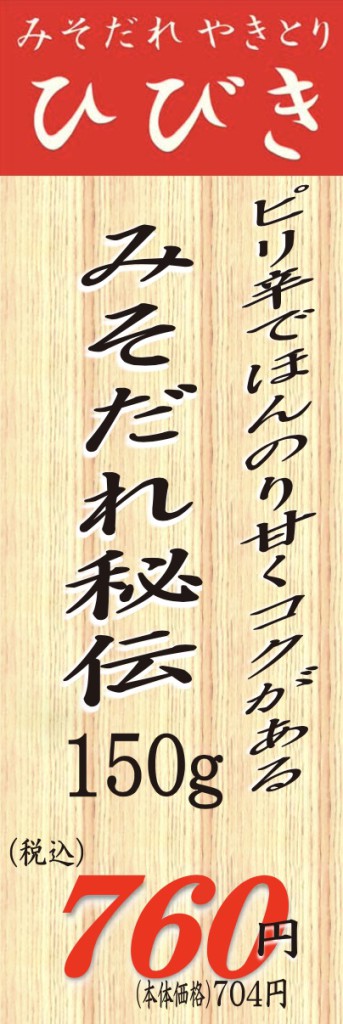 みそだれ やきとり
ひびき
ピリ辛でほんのり甘くコクがある
みそだれ秘伝
150g
(税込)
760円
(本体価格)704円